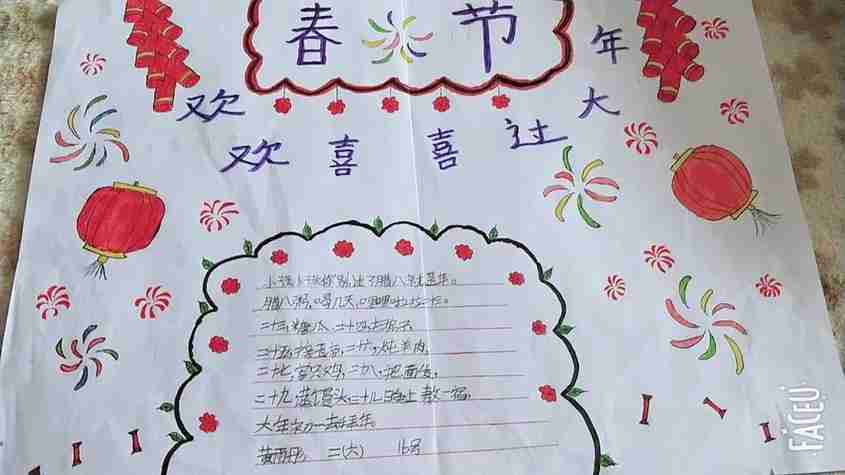 春节
欢欢喜喜过大年
小孩小孩你别,过了腊八就是年。
腊八粥,喝几天,哩哩啦啦二十三。
二十三,糖瓜,二十四,扫房子
二十五,豆腐,二十六,炖羊肉
二十七,二十八,把面发,
二十九,蒸馒头,三十儿晚上熬一宿,
大年初一去拜年
二(六) 16号
FACEU